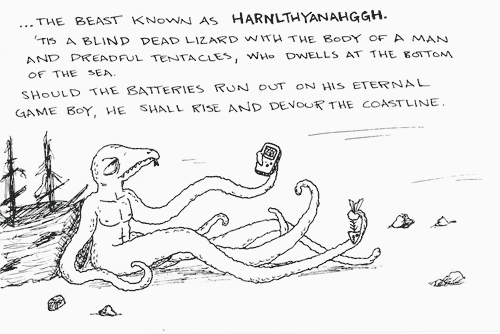 ...THE BEAST KNOWN AS HARNLTHYANAHGGH.
'TIS A BLIND DEAD LIZARD WITH THE BODY OF A MAN
AND DREADFUL TENTACLES, WHO DWELLS AT THE BOTTOM
OF THE SEA.
SHOULD THE BATTERIES RUN OUT ON HIS ETERNAL
GAME BOY, HE SHALL RISE AND DEVOUR THE COASTLINE.